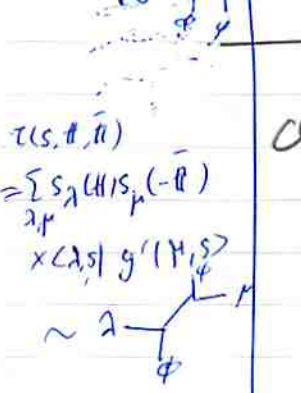 φ φ
τ(s, t, t̄)
= Σ_{λ,μ} s_λ(t) s_μ(-t̄)
×<λ,s| g' |μ,s>
∼ λ φ μ
φ